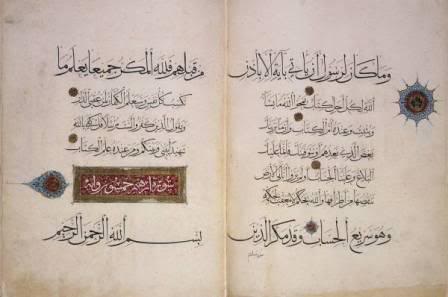 وما كان لرسول أن يأتي بآية إلا بإذن
الله لكل أجل كتاب يمحو الله ما يشاء
ويثبت وعنده أم الكتاب وإن ما نرينك
بعض الذي نعدهم أو نتوفينك فإنما عليك
البلاغ وعلينا الحساب أولم يروا أنا نأتي الأرض
ننقصها من أطرافها والله يحكم لا معقب لحكمه
وهو سريع الحساب وقد مكر الذين
من قبلهم فلله المكر جميعا يعلم ما
تكسب كل نفس وسيعلم الكفار لمن عقبى الدار
ويقول الذين كفروا لست مرسلا قل كفى بالله
شهيدا بيني وبينكم ومن عنده علم الكتاب
سورة إبرهيم خمسون
بسم الله الرحمن الرحيم